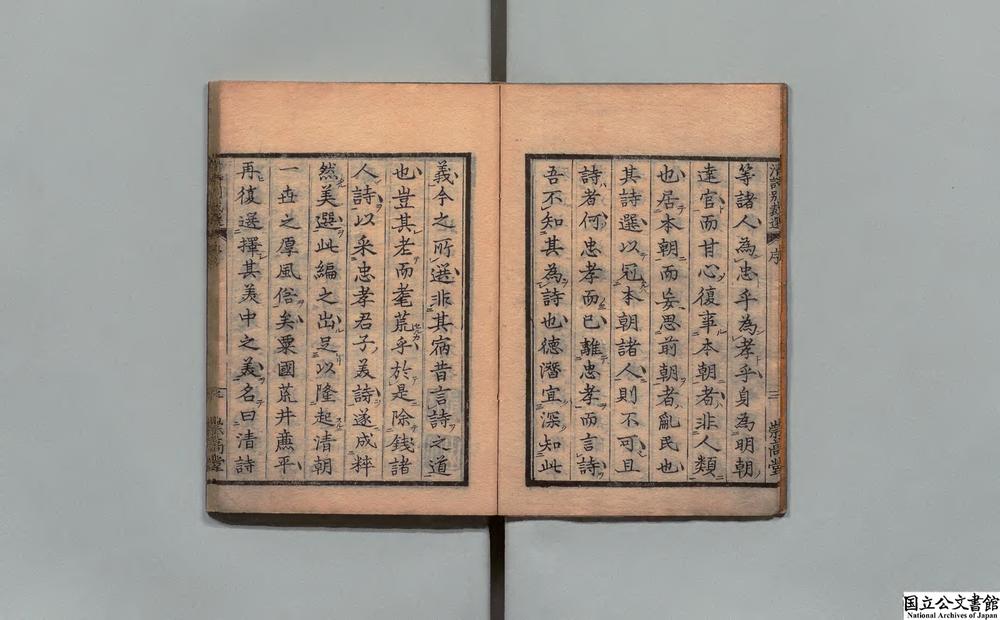 等諸人為忠乎為孝乎身為明朝
達官而甘心復事本朝者非人類
也居本朝而妄思前朝者亂民也
其詩選以冠本朝諸人則不可且
詩者何忠孝而已離忠孝而言詩
吾不知其為詩也德潛宜深知此
義今之所選非其病昔言詩之道
也豈其老而耄荒乎於是除錢諸
人詩以采忠孝君子美詩遂成粹
然美選此編之出足以隆起清朝
一世之厚風俗矣粟國荒井燕平
再復選擇其美中之美名曰清詩
清詩別裁選
序
三
崇高堂
国立公文書館
National Archives of Japan